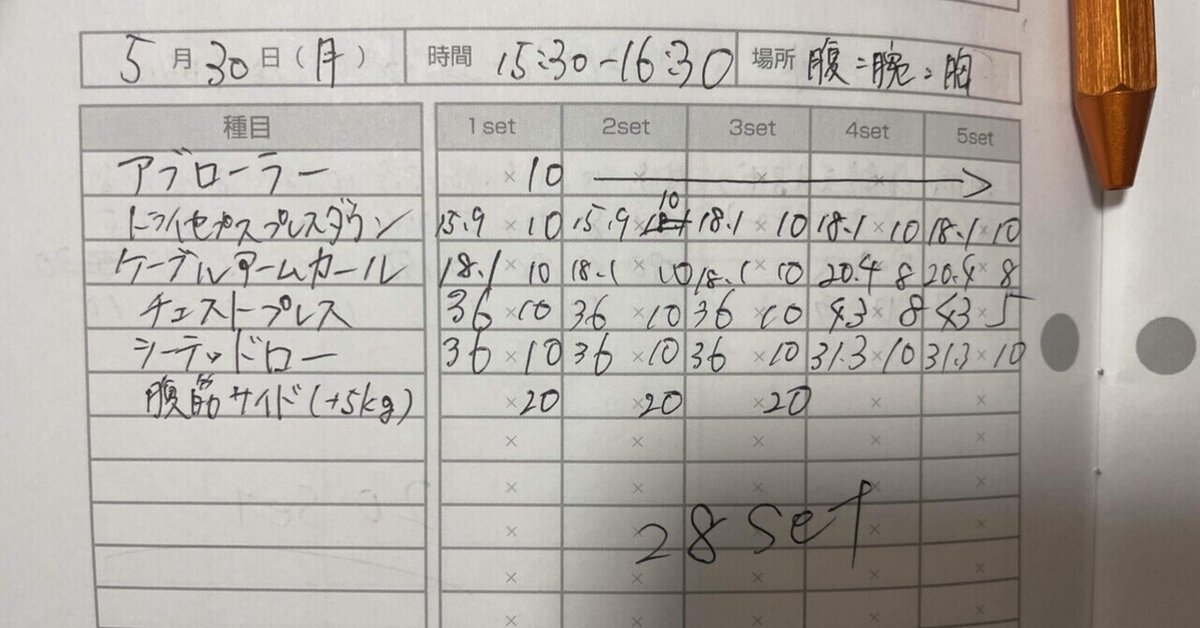 5月30日(月) 時間 15:30-16:30 場所 腹=腕=胸
種目 1set 2set 3set 4set 5set
アブローラー ×10 × × × →
トライセプスプレスダウン 15.9×10 15.9×10 18.1×10 18.1×10 18.1×10
ケーブルアームカール 18.1×10 18.1×10 18.1×10 20.4×8 20.4×8
チェストプレス 36×10 36×10 36×10 43×8 43×5
シーテッドロー 36×10 36×10 36×10 31.3×10 31.3×10
腹筋サイド(+5kg) ×20 ×20 ×20 × ×
× × × × ×
× × × × ×
× × × × ×
28set
× × × × ×
× × × × ×